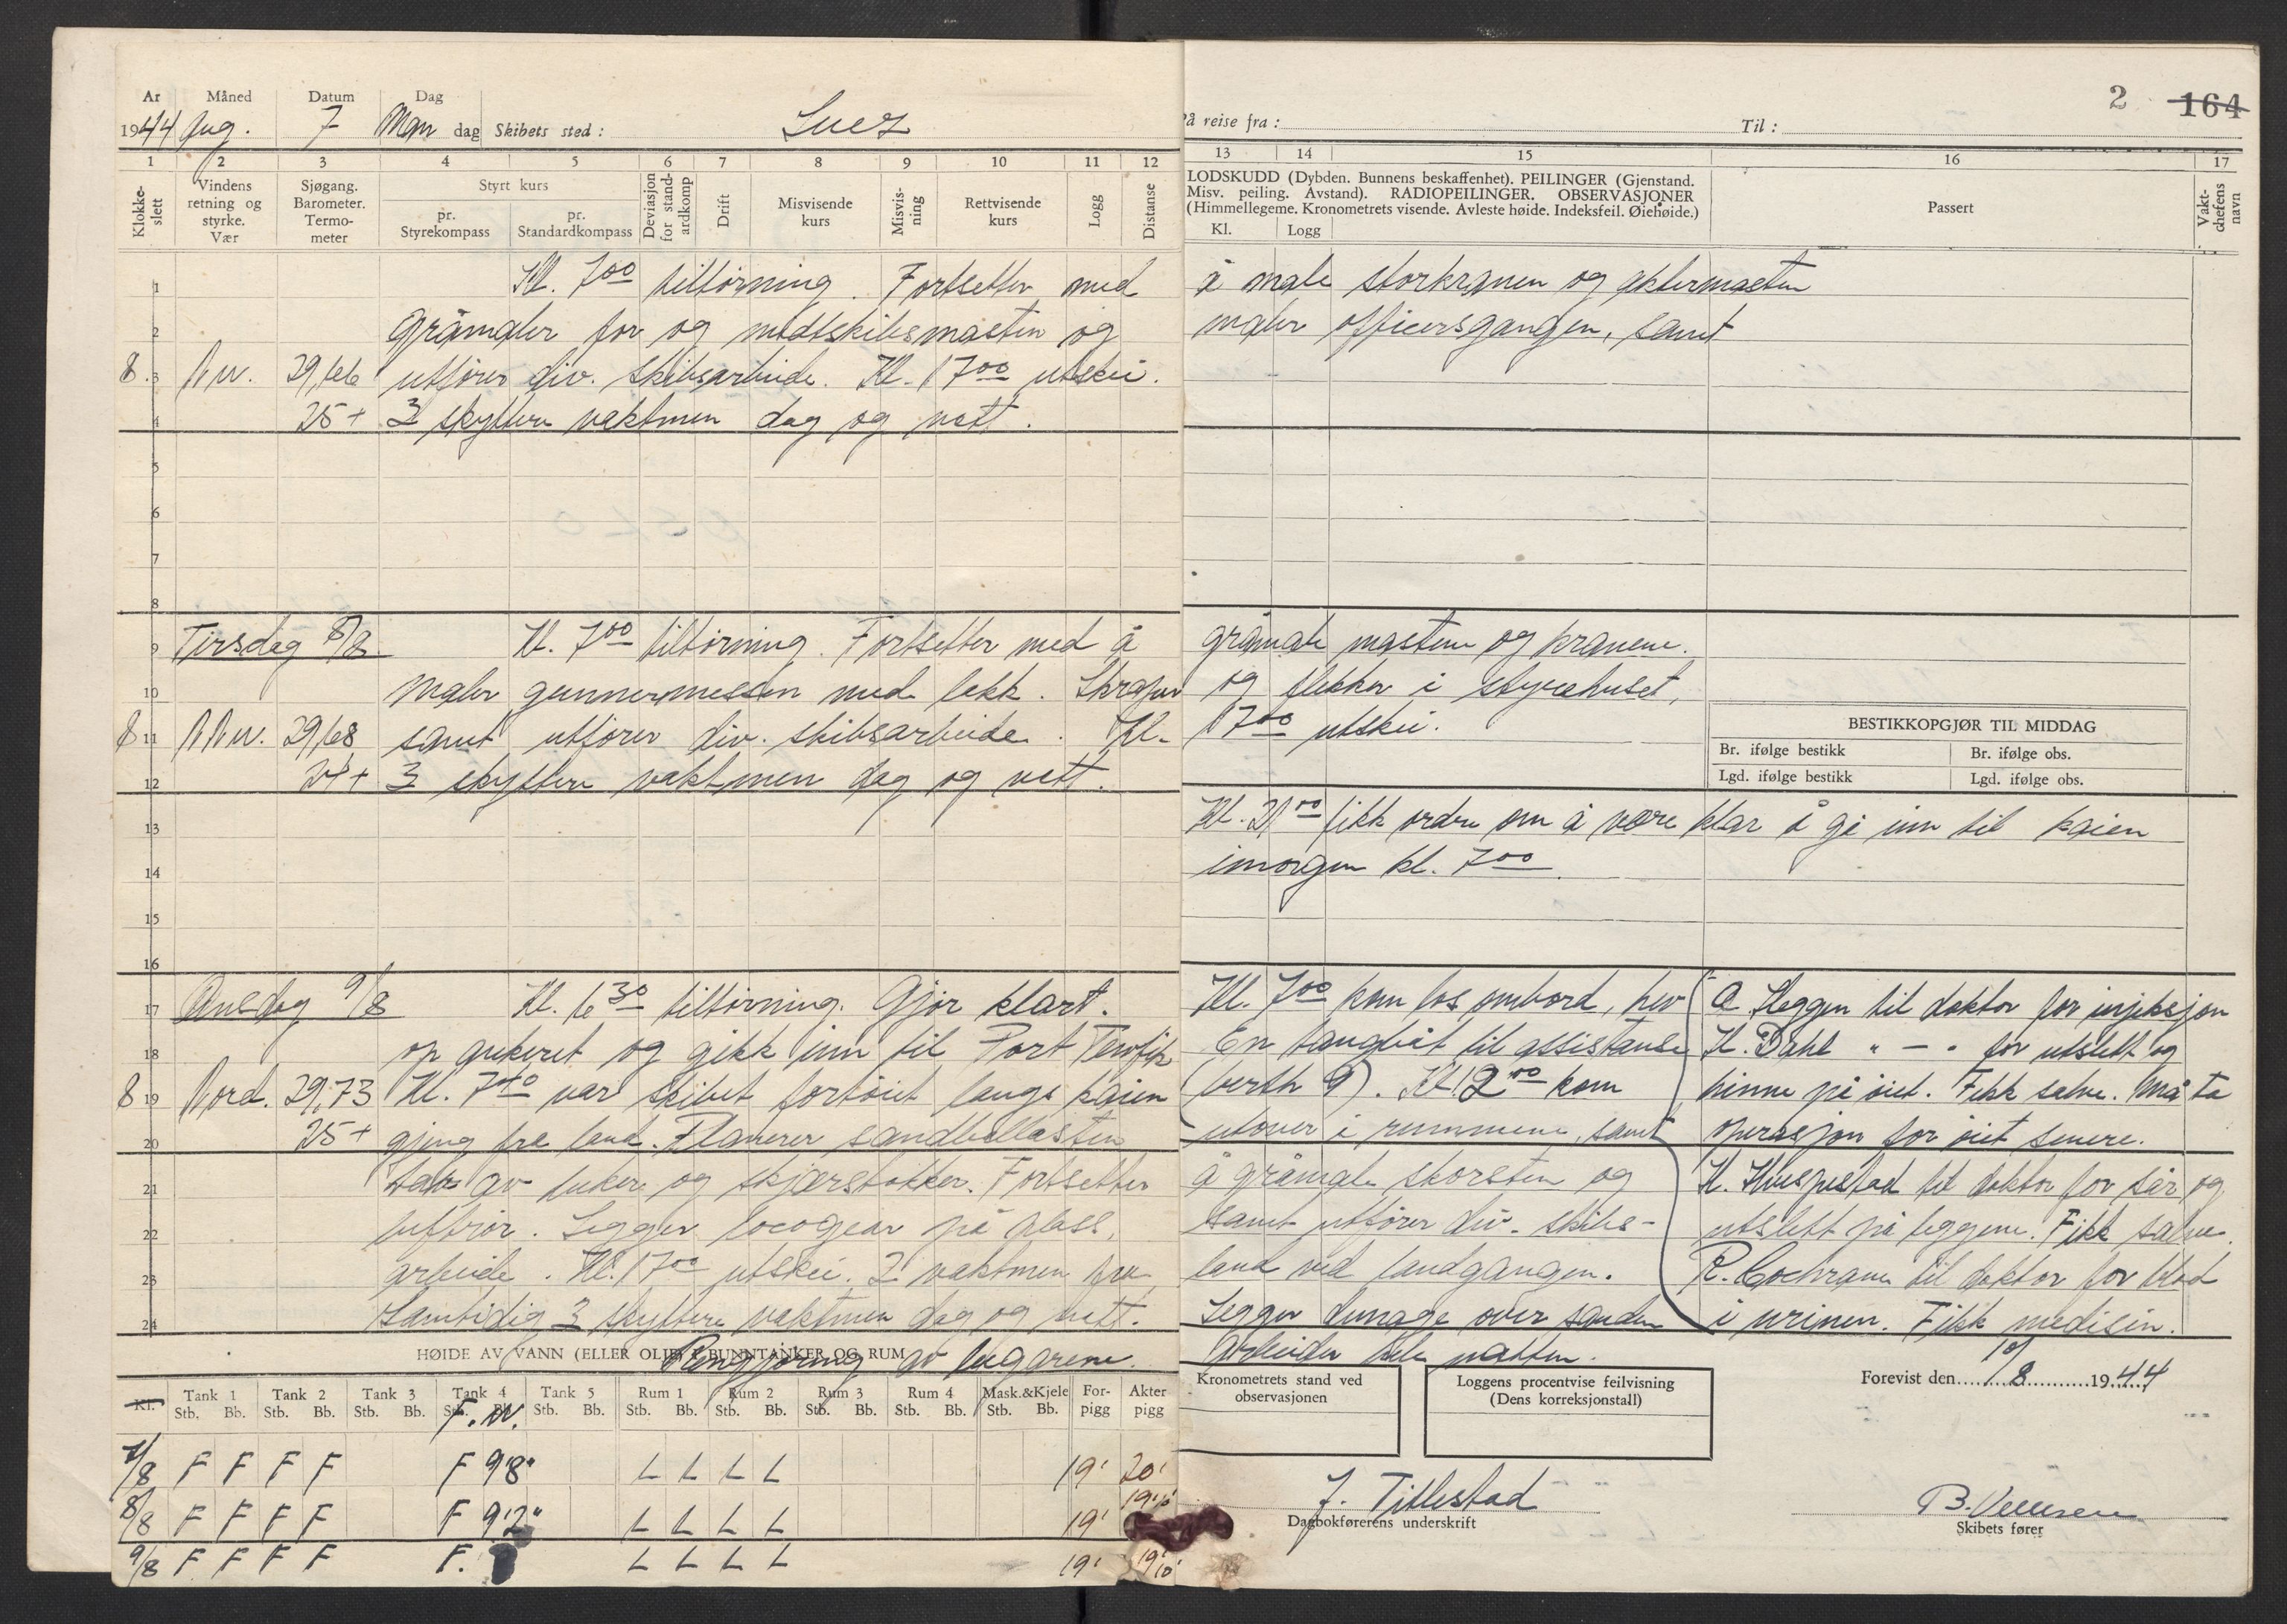 2 164
År Måned Datum Dag
1944 Aug. 7 Man dag Skibets sted: Suez
På reise fra: Til:
1 2 3 4 5 6 7 8 9 10 11 12 13 14 15 16 17
Klokke-slett
Vindens retning og styrke. Vær
Sjøgang. Barometer. Termo-meter
Styrt kurs
pr. Styrekompass
pr. Standardkompass
Deviasjon for stand-ardkomp
Drift
Misvisende kurs
Misvis-ning
Rettvisende kurs
Logg
Distanse
LODSKUDD (Dybden. Bunnens beskaffenhet). PEILINGER (Gjenstand.
Misv. peiling. Avstand). RADIOPEILINGER. OBSERVASJONER
(Himmellegeme. Kronometrets visende. Avleste høide. Indeksfeil. Øiehøide.)
Kl. Logg
Passert
Vakt-chefens navn
1 Kl. 700 tiltörning. Fortsetter med å male storkranen og aktermasten
2 gråmaler for og midtskibsmasten og maler officersgangen, samt
8. 3 NW. 29,66 utförer div. skibsarbeide. Kl. 1700 utskei.
4 25+ 3 skyttere vaktmen dag og natt.
5
6
7
8
9 Tirsdag 8/8 Kl. 700 tiltörning. Fortsetter med å gråmale mastene og kranene.
10 Maler gunnermessen med lakk. Skraper og flekker i styrehuset,
8 11 NNW. 29,68 samt utförer div. skibsarbeide. Kl. 1700 utskei.
12 27+ 3 skyttere vaktmen dag og natt.
BESTIKKOPGJØR TIL MIDDAG
Br. ifølge bestikk Br. ifølge obs.
Lgd. ifølge bestikk Lgd. ifølge obs.
13 Kl. 2100 fikk ordre om å være klar å gå inn til kaien
14 imorgen kl. 700.
15
16
17 Onsdag 9/8 Kl. 630 tiltörning. Gjör klart. Kl. 700 kom los ombord, hev
18 op ankeret og gikk inn til Port Tewfik En taugbåt til assistanse
8 19 Nord. 29,73 Kl. 740 var skibet fortöiet langs kaien (berth 9). Kl. 1200 kom
20 25+ gjeng fra land. Planerer sandballasten utover i rummene, samt
21 tar av luker og skjærstokker. Fortsetter å gråmale skorsten og
22 luftrör. Legger locogear på plass, samt utförer div. skibs-
23 arbeide. Kl. 1700 utskei. 2 vaktmen fra land ved landgangen.
24 Samtidig 3 skyttere vaktmen dag og natt. Legger dunage over sanden
Rengjöring av lugarene. Arbeider hele natten.
A. Skeggen til doktor for injeksjon
H. Dahl " — " for utslett og
hinne på öiet. Fikk salve. Må ta
operasjon for öiet senere.
til doktor for sår og
utslett på leggene. Fikk salve.
R. Cochrane til doktor for blod
i urinen. Fikk medisin.
HØIDE AV VANN (ELLER OLJE) I BUNNTANKER OG RUM
Kl. Tank 1 Tank 2 Tank 3 Tank 4 Tank 5 Rum 1 Rum 2 Rum 3 Rum 4 Mask.&Kjele For-pigg Akter pigg
Stb. Bb. Stb. Bb. Stb. Bb. Stb. Bb. Stb. Bb. Stb. Bb. Stb. Bb. Stb. Bb. Stb. Bb. Stb. Bb.
F.W.
7/8 F F F F F 9'8" L L L L 19' 20'
8/8 F F F F F 9'2" L L L L 19' 19'10'
9/8 F F F F F. L L L L 19' 19'10'
Kronometrets stand ved observasjonen
Loggens procentvise feilvisning
(Dens korreksjonstall)
Forevist den 10/8 1944
J. Tillestad
Dagbokførerens underskrift
Skibets fører